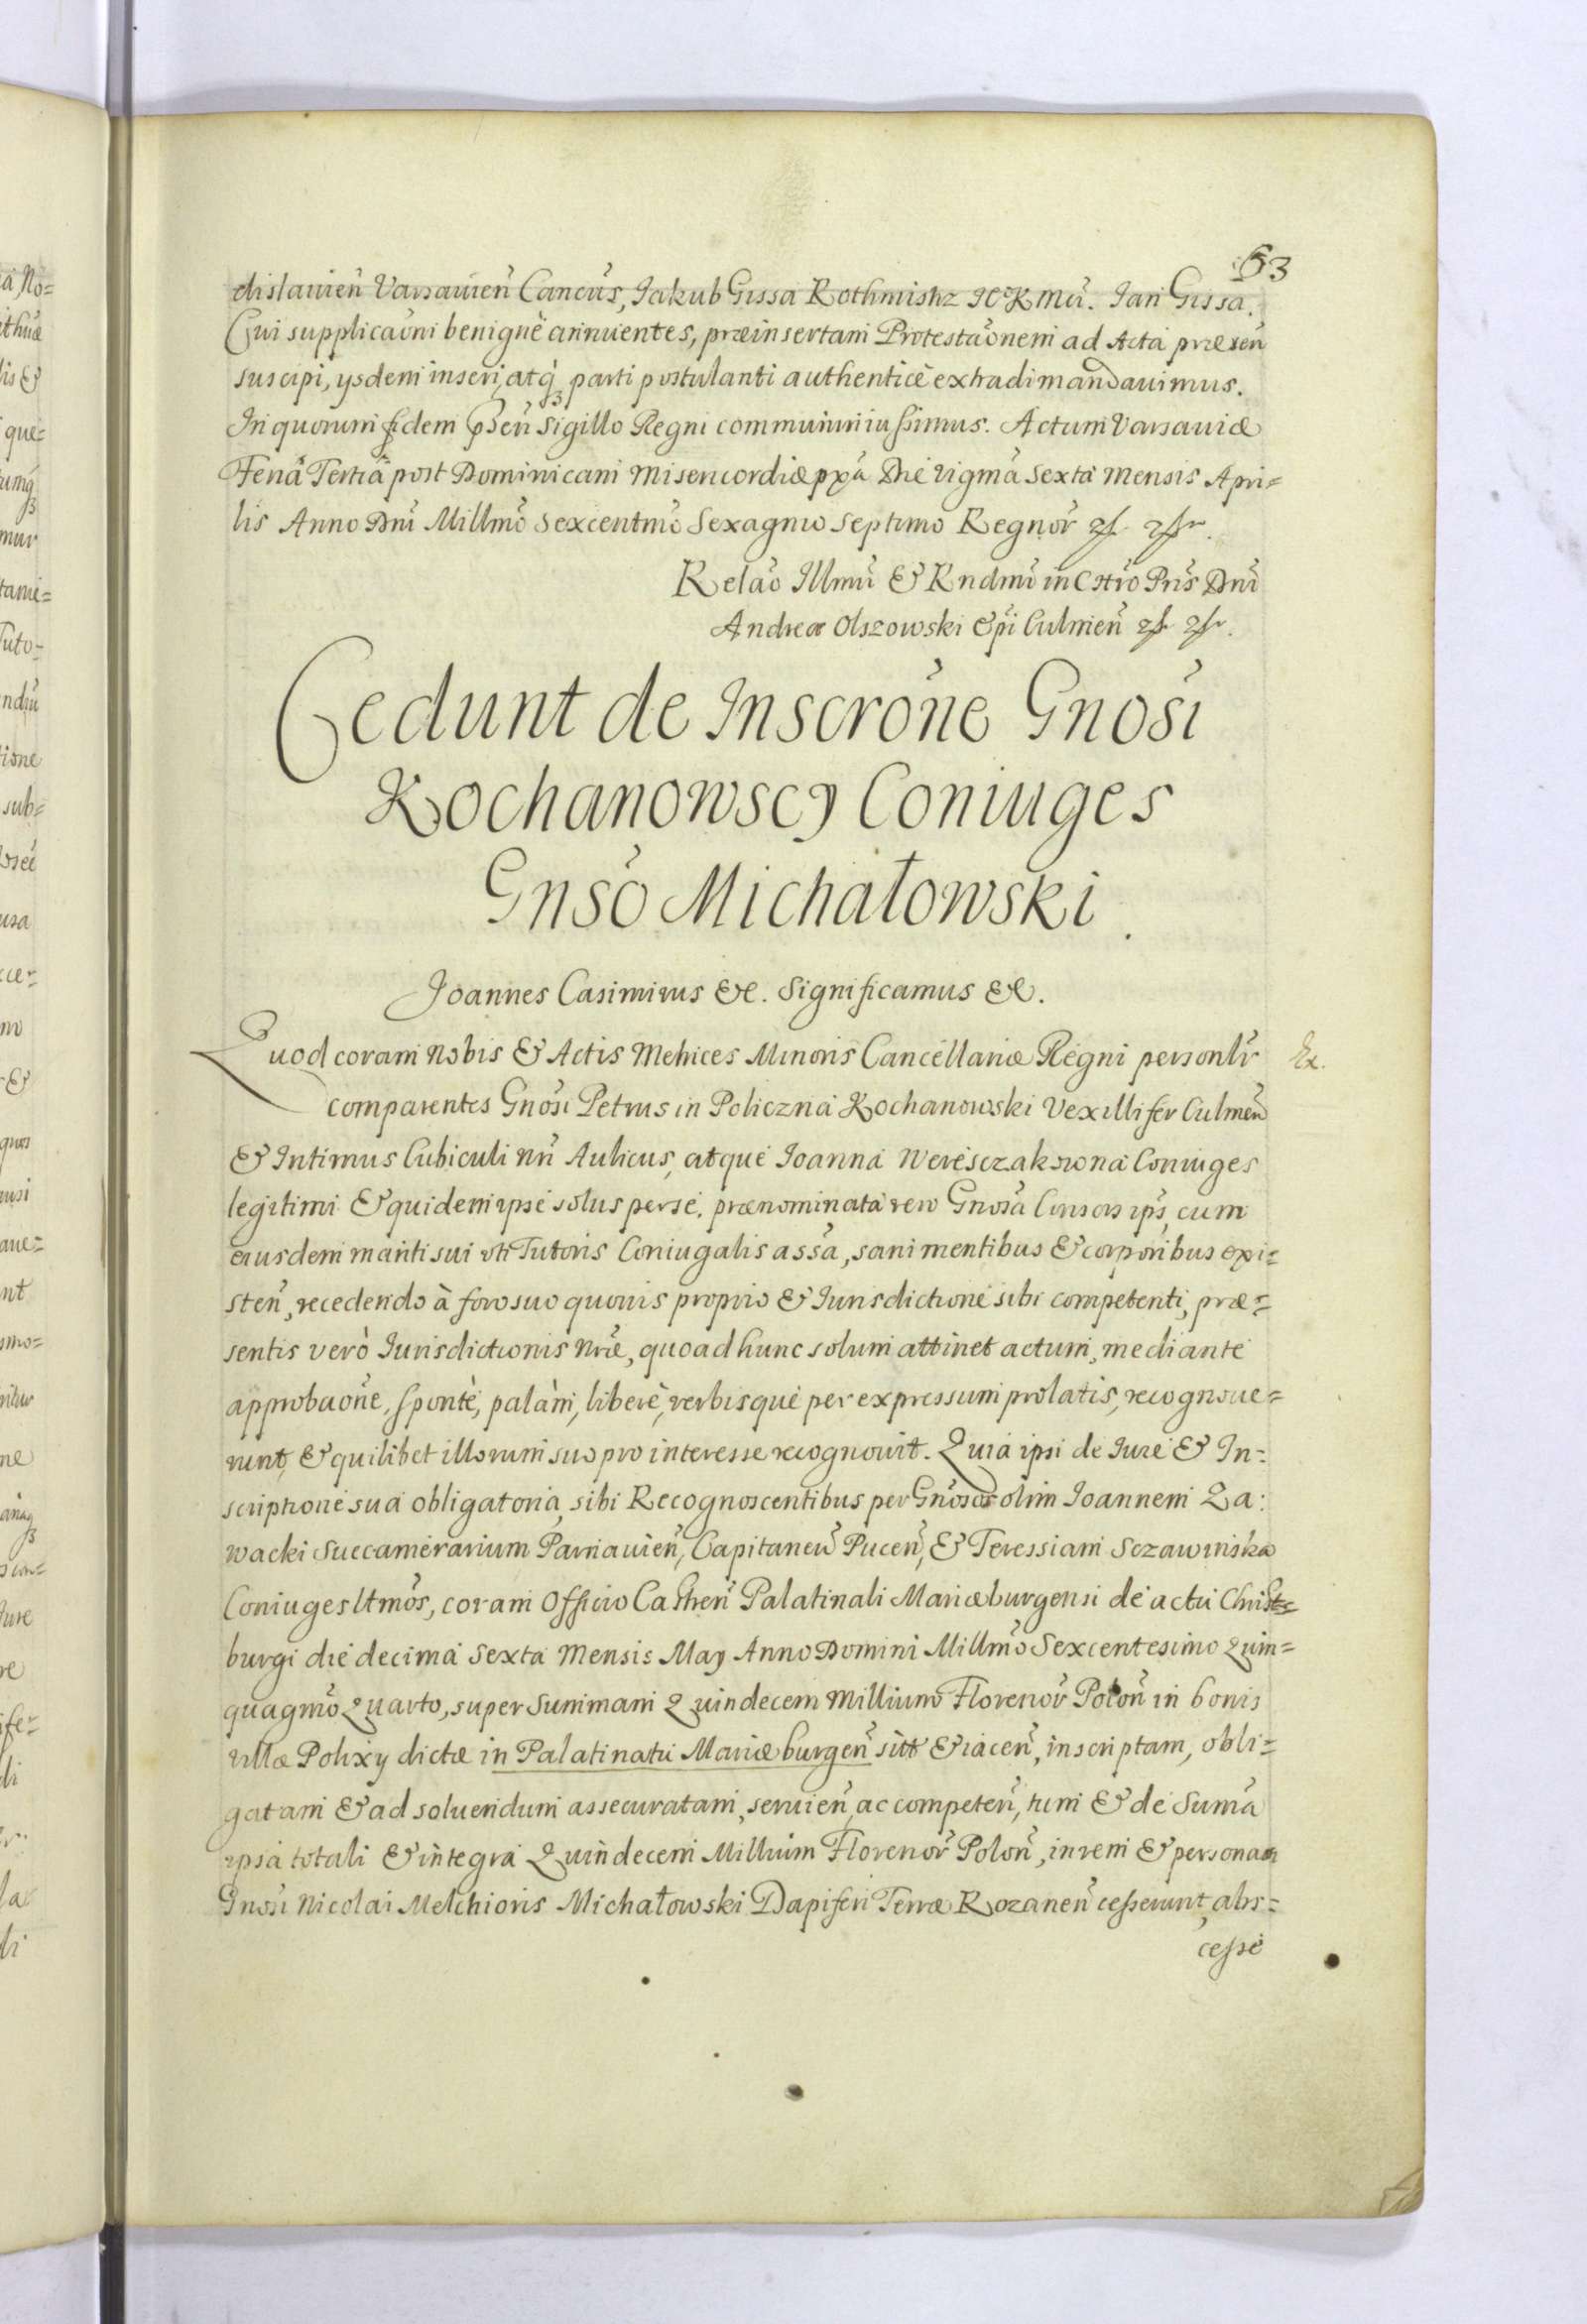 63
dislauien̄ Varsauien̄ Cancūs, Jakub Gissa Rothmishz JoKmū. Jan Gissa.
Cui supplicaōni benignè annuentes, præinsertam Protestaōnem ad Acta præsen̄
suscipi, ysdem inseri, atq̨ parti postulanti authenticè extradi mandauimus.
In quorum fidem p̄sen̄ Sigillo Regni communiri iussimus. Actum Varsauiæ
Feria Tertia post Dominicam Misericordiæ pxa Die vigma Sexta Mensis Apri=
lis Anno Dnī Millmō Sexcentmō Sexagmo Septimo Regnor̄
Relaō Illmī & Rndmī in Cstro Pris Dnī
Andreæ Olszowski Epī Culmen̄
Cedunt de Inscrōne Gnosi
Kochanowscy Coniuges
Gnsō Michałowski.
Joannes Casimirus &c. Significamus &c.
Quod coram Nobis & Actis Metrices Minoris Cancellariæ Regni personlr
Ex.
comparentes Gnosi Petrus in Policzna Kochanowski Vexillifer Culmen̄
& Intimus Cubiculi nrī Aulicus, atque Joanna Weresczakowna Coniuges
legitimi & quidem ipse solus per se, prænominata vero Gnosa Consors ips, cum
eiusdem mariti sui uti Tutoris Coniugalis assa, sani mentibus & corporibus exi=
sten̄, recedendo à foro suo quouis proprio & Iurisdictione sibi competenti, præ=
sentis verò Iurisdictionis nrae, quoad hunc solum attinet actum, mediante
approbaōne, spontè, palàm, liberè, verbisque per expressum prolatis, recognoue=
runt, & quilibet illorum suo pro interesse recognouit. Quia ipsi de Iure & In=
scriptione sua obligatoria, sibi Recognoscentibus per Gnosos olim Joannem Za:
wacki Succamerarium Parnauien̄, Capitaneū Pucen̄, & Teressiam Sczawinska
Coniuges ltmos, coram Officio Castren̄ Palatinali Mariæburgensi de actu Christ=
burgi die decima Sexta Mensis May Anno Domini Millmō Sexcentesimo Quin=
quagmō Quarto, super Summam Quindecem Millium Florenor̄ Polon̄ in bonis
villæ Polixy dictæ in Palatinatu Mariæburgen̄ sitt & iacen̄, inscriptam, obli=
gatam & ad soluendum assecuratam, seruien̄, ac competen̄, tum & de Summa
ipsa totali & integra Quindecem Millium Florenor̄ Polon̄, in rem & personam
Gnosi Nicolai Melchioris Michałowski Dapiferi Terræ Rozanen̄ cesserunt, abs=
cesse